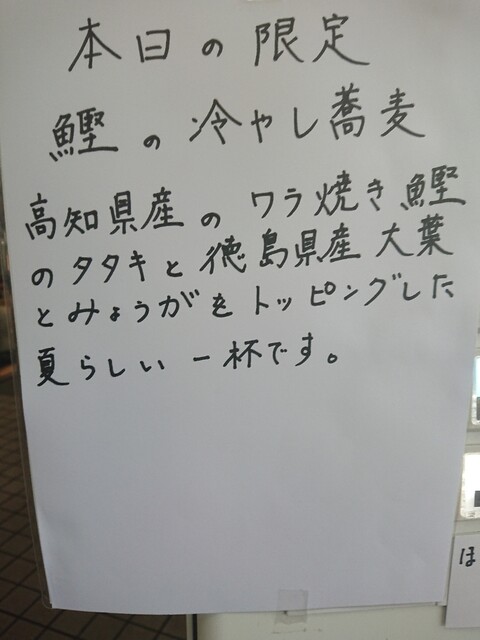 本日の限定
鰹の冷やし蕎麦
高知県産のワラ焼き鰹
のタタキと徳島県産大葉
とみょうがをトッピングした
夏らしい一杯です。
ほ